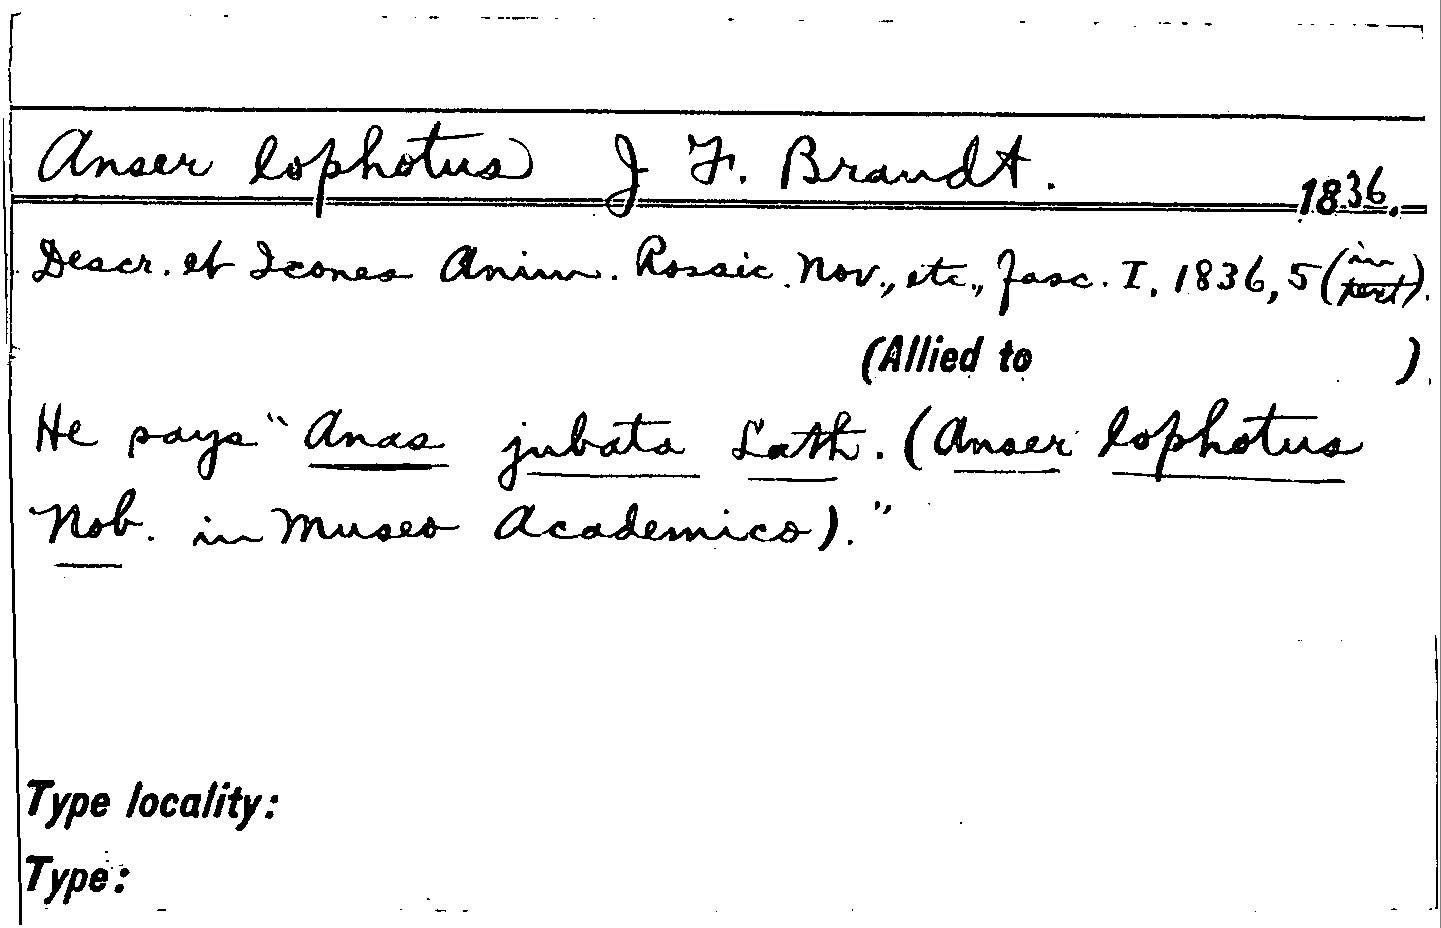 Anser lophotus J F. Brandt.
1836.
Descr. et Icones Anim. Rossic. Nov., etc., fasc. I, 1836, 5 (in text).
(Allied to )
He says "Anas jubata Lath. (Anser lophotus
Nob. in Museo Academico)."
Type locality:
Type: